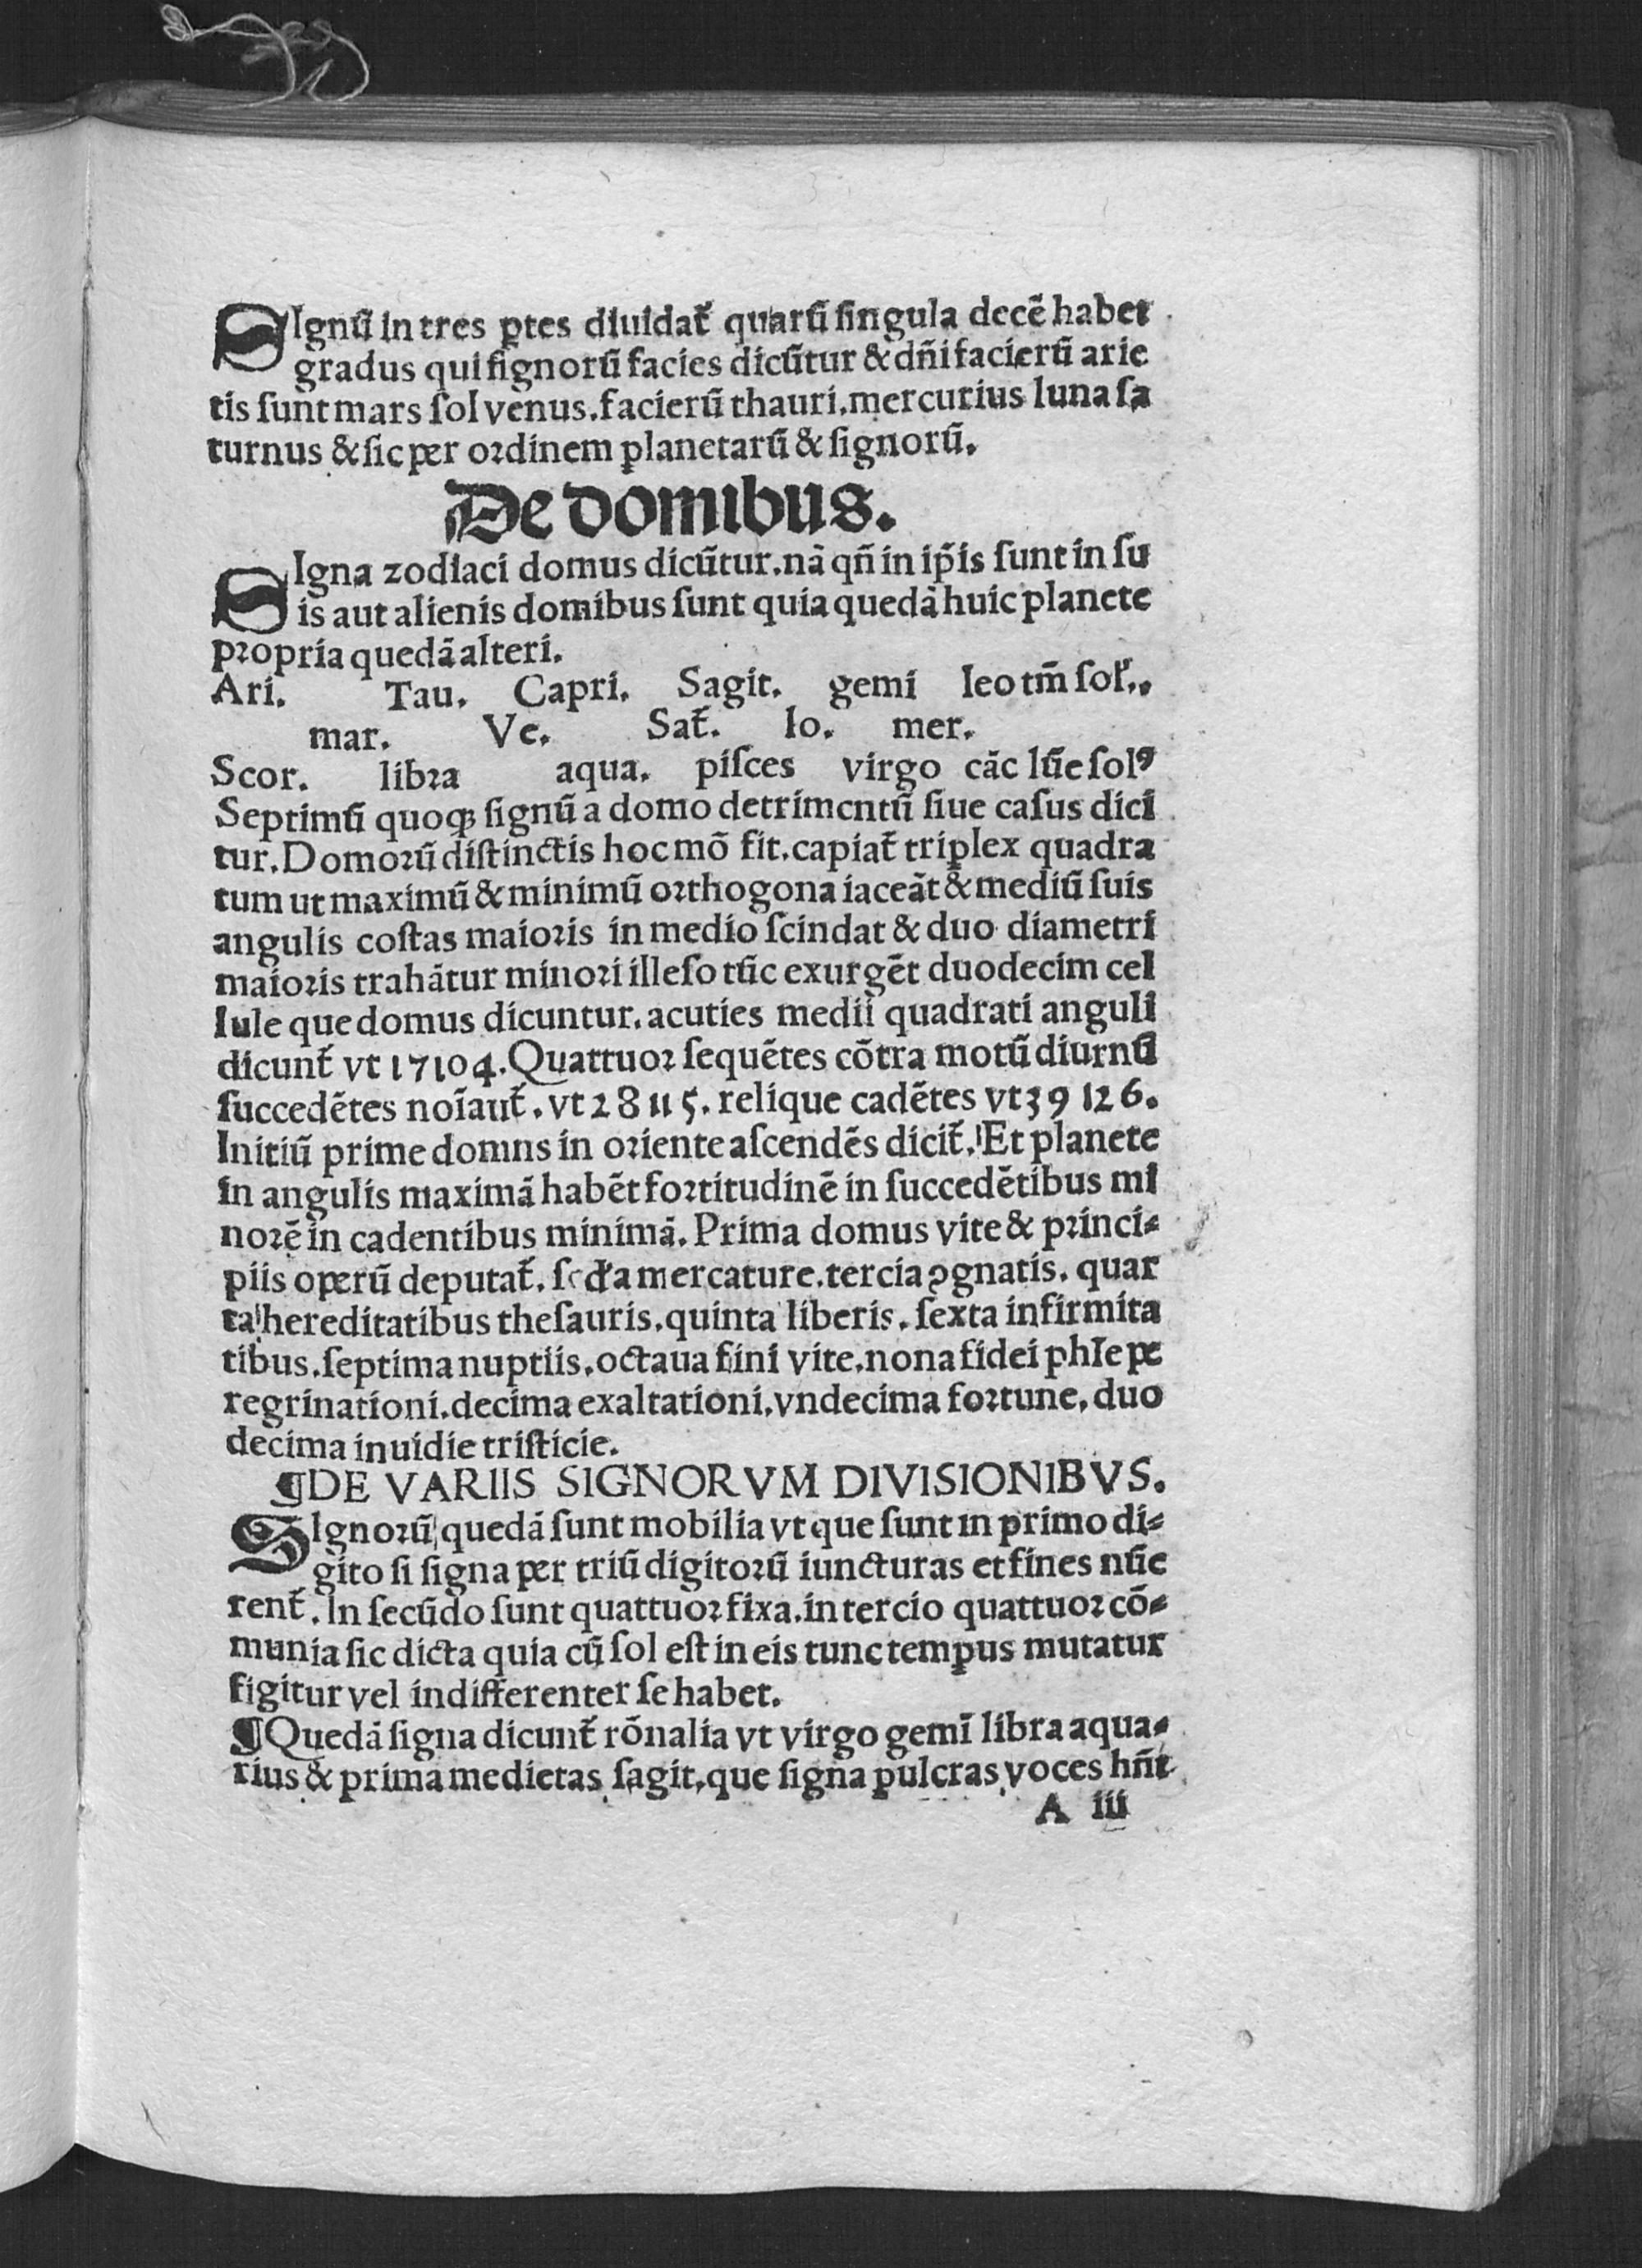 SIgnū in tres ꝑtes diuidat᷑ quarū ſingula decē habet
gradus qui ſignorū facies dicūtur & dn̄i facierū arie
tis ſunt mars ſol venus. facierū thauri. mercurius luna ſa
turnus & ſic per ordinem planetarū & ſignorū.
De domibus.
SIgna zodiaci domus dicūtur. nā qn̄ in ip̄is ſunt in ſu
is aut alienis domibus ſunt quia quedā huic planete
propria quedā alteri.
Ari. Tau. Capri. Sagit. gemi leo tm̄ ſol᷑.
mar. Ve. Sat᷑. Io. mer.
Scor. libra aqua. piſces virgo cāc lūe ſolꝰ
Septimū quoqꝫ ſignū a domo detrimentū ſiue caſus dici
tur. Domorū diſtinctis hoc mō fit. capiat᷑ triplex quadra
tum ut maximū & minimū orthogona iaceāt & mediū ſuis
angulis coſtas maioris in medio ſcindat & duo diametri
maioris trahātur minori illeſo tūc exurgēt duodecim cel
lule que domus dicuntur. acuties medii quadrati anguli
dicunt᷑ vt 1 7 10 4. Quattuor ſequētes cōtra motū diurnū
ſuccedētes noīaut᷑. vt 2 8 11 5. relique cadētes vt 3 9 12 6.
Initiū prime domns in oriente aſcendēs dicit᷑. Et planete
in angulis maximā habēt fortitudinē in ſuccedētibus mi
norē in cadentibus minimā. Prima domus vite & princi⸗
piis operū deputat᷑. ſcd̄a mercature. tercia ꝯgnatis. quar
ta hereditatibus theſauris. quinta liberis. ſexta infirmita
tibus. ſeptima nuptiis. octaua fini vite. nona fidei ph̄Ie pe
regrinationi. decima exaltationi. vndecima fortune. duo
decima inuidie triſticie.
¶DE VARIIS SIGNORVM DIVISIONIBVS.
SIgnorū quedā ſunt mobilia vt que ſunt in primo di⸗
gito ſi ſigna per triū digitorū iuncturas et fines nūe
rent᷑. In ſecūdo ſunt quattuor fixa. in tercio quattuor cō⸗
munia ſic dicta quia cū ſol eſt in eis tunc tempus mutatur
figitur vel indifferenter ſe habet.
¶Quedā ſigna dicunt᷑ rōnalia vt virgo gemī libra aqua⸗
rius & prima medietas ſagit. que ſigna pulcras voces hn̄t
A iii